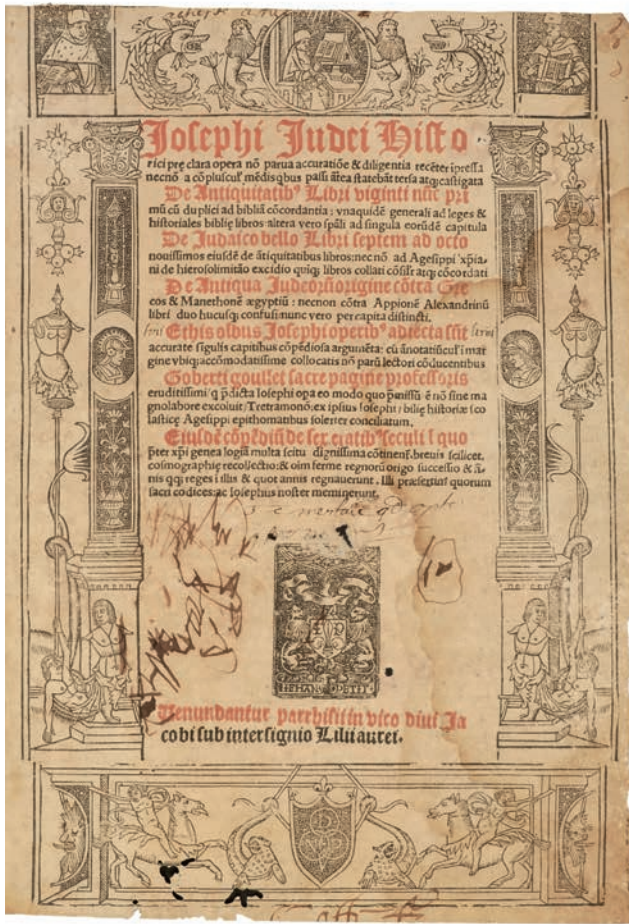 Josephi Judei Histo
rici pre clara opera nō parua accuratiōe & diligentia recēter īpressa
necnō a cōpluscul' mēdis qbus passī āntea statebāt tersa atqꝫ castigata
De Antiquitatibꝰ Libri viginti nūc pri
mū cū du plici ad bibliā cōcordantia : vnaquidē generali ad leges &
historiales biblię libros: altera vero spāli ad singula eorūdē capitula
De Judaico bello Libri septem ad octo
nouissimos eiusdē de ātiquitatibus libros: nec nō ad Agesippi xp̄ia-
ni de hierosolimitāo excidio quiqꝫ libros collati cōsiſr atqꝫ cōcordati
De Antiqua Judeorū origine cōtra Gre
cos & Manethonē ægyptiū : necnon cōtra Appionē Alexandrinū
libri duo hucusqꝫ confusi: nunc vero per capita distincti.
Ethis oībus Josephi operibꝰ adiecta sūt
accurate sīgulis capitibus cōpēdiosa argumēta: cū ānotatiūcul' ī mar
gine vbiqꝫ: accōmodatissime collocatis nō parū lectori cōducentibus
Goberti goullet sacre pagine professoris
eruditissimi: q p̄dicta Iosephi opa eo modo quo p̄missū ē nō sine ma
gno labore excoluit: Tretramonō: ex ipsius Iosephi: biblię historiæ sco
lasticę Agesippi epithomatibus solerter conciliatum.
Eiusdē cōpēdiū de sex etatibꝰ seculi ī quo
p̄ter xp̄i genea logiā multa scitu dignissima cōtinenſ. breuis scilicet
cosmographię recollectio: & oīm ferme regnorū origo successio & ā-
nis qqꝫ reges ī illis & quot annis regnauerunt. Illi præsertim quorum
sacri codices: ac Iosephus noster meminerunt.
HEMAN PETIT
Venundantur parrhisii in vico diui Ja
cobi sub intersignio Lilii aurei.